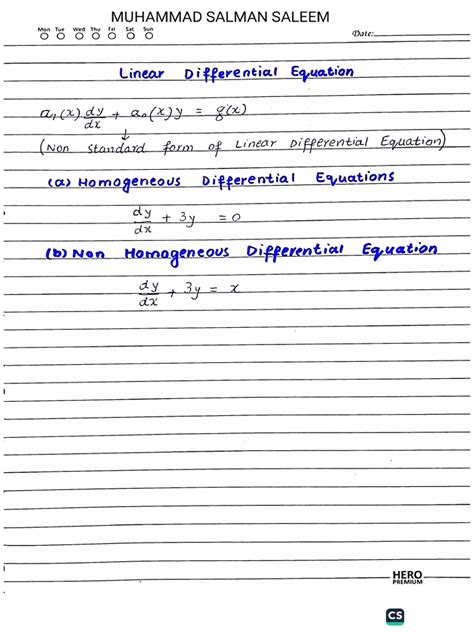 MUHAMMAD SALMAN SALEEM
Mon Tue Wed Thu Fri Sat Sun
Date:
Linear Differential Equation
a₁(x) dy/dx + a₀(x)y = g(x)
↓
(Non Standard form of Linear Differential Equation)
(a) Homogeneous Differential Equations
dy/dx + 3y = 0
(b) Non Homogeneous Differential Equation
dy/dx + 3y = x
HERO
PREMIUM
CS